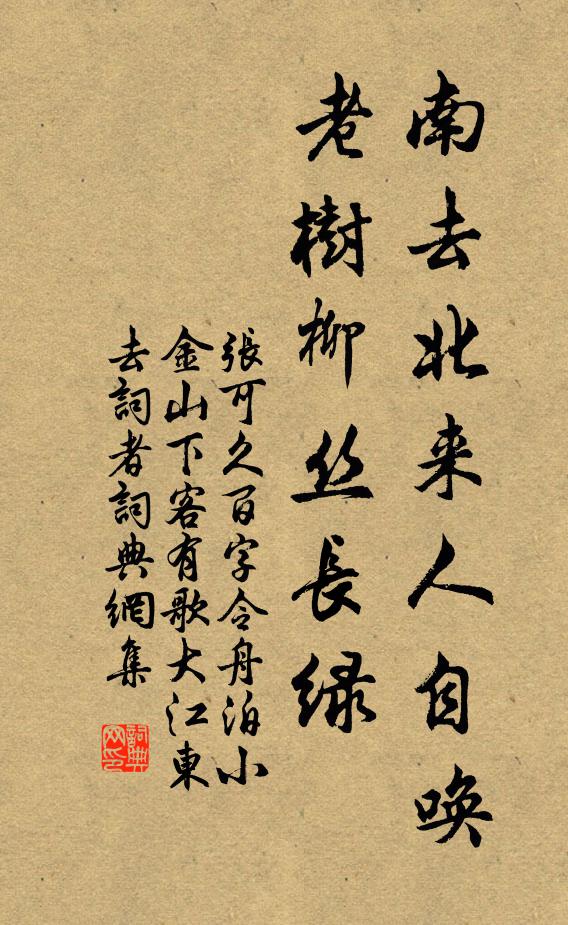 南去北来人自唤
老樹柳丝長緑
張可久百字令舟泊小
金山下客有歌大江東
去詞者詞典網集
詞典网印